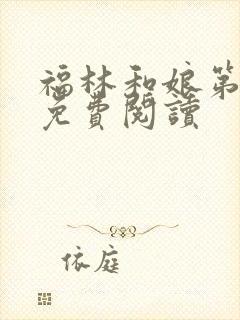 福林和娘第
免費閱讀
依庭